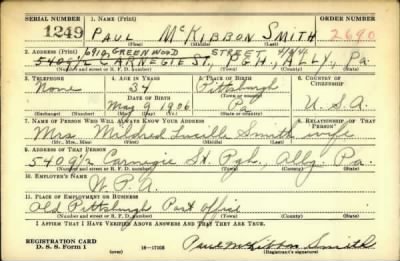 SERIAL NUMBER 1. NAME (Print) ORDER NUMBER
1249 PAUL McKIBBON SMITH 2690
(First) (Middle) (Last)
2. ADDRESS (Print) 6910 GREENWOOD STREET
5409½ CARNEGIE ST., PGH., ALLY., PA.
(Number and street or R. F. D. number) (Town) (County) (State)
3. TELEPHONE 4. AGE IN YEARS 5. PLACE OF BIRTH 6. COUNTRY OF CITIZENSHIP
None 34 Pittsburgh
DATE OF BIRTH
May 9 1906 Pa U.S.A.
(Exchange) (Number) (Mo.) (Day) (Yr.) (State or country)
7. NAME OF PERSON WHO WILL ALWAYS KNOW YOUR ADDRESS 8. RELATIONSHIP OF THAT PERSON
Mrs. Mildred Lucille Smith wife
(Mr., Mrs., Miss) (First) (Middle) (Last)
9. ADDRESS OF THAT PERSON
5409½ Carnegie St. Pgh., Ally. Pa.
(Number and street or R. F. D. number) (Town) (County) (State)
10. EMPLOYER'S NAME
W.P.A.
11. PLACE OF EMPLOYMENT OR BUSINESS
Old Pittsburgh Post Office
(Number and street or R. F. D. number) (Town) (County) (State)
I AFFIRM THAT I HAVE VERIFIED ABOVE ANSWERS AND THAT THEY ARE TRUE.
REGISTRATION CARD
D. S. S. Form 1 16—17105 Paul McKibbon Smith
(Registrant's signature)